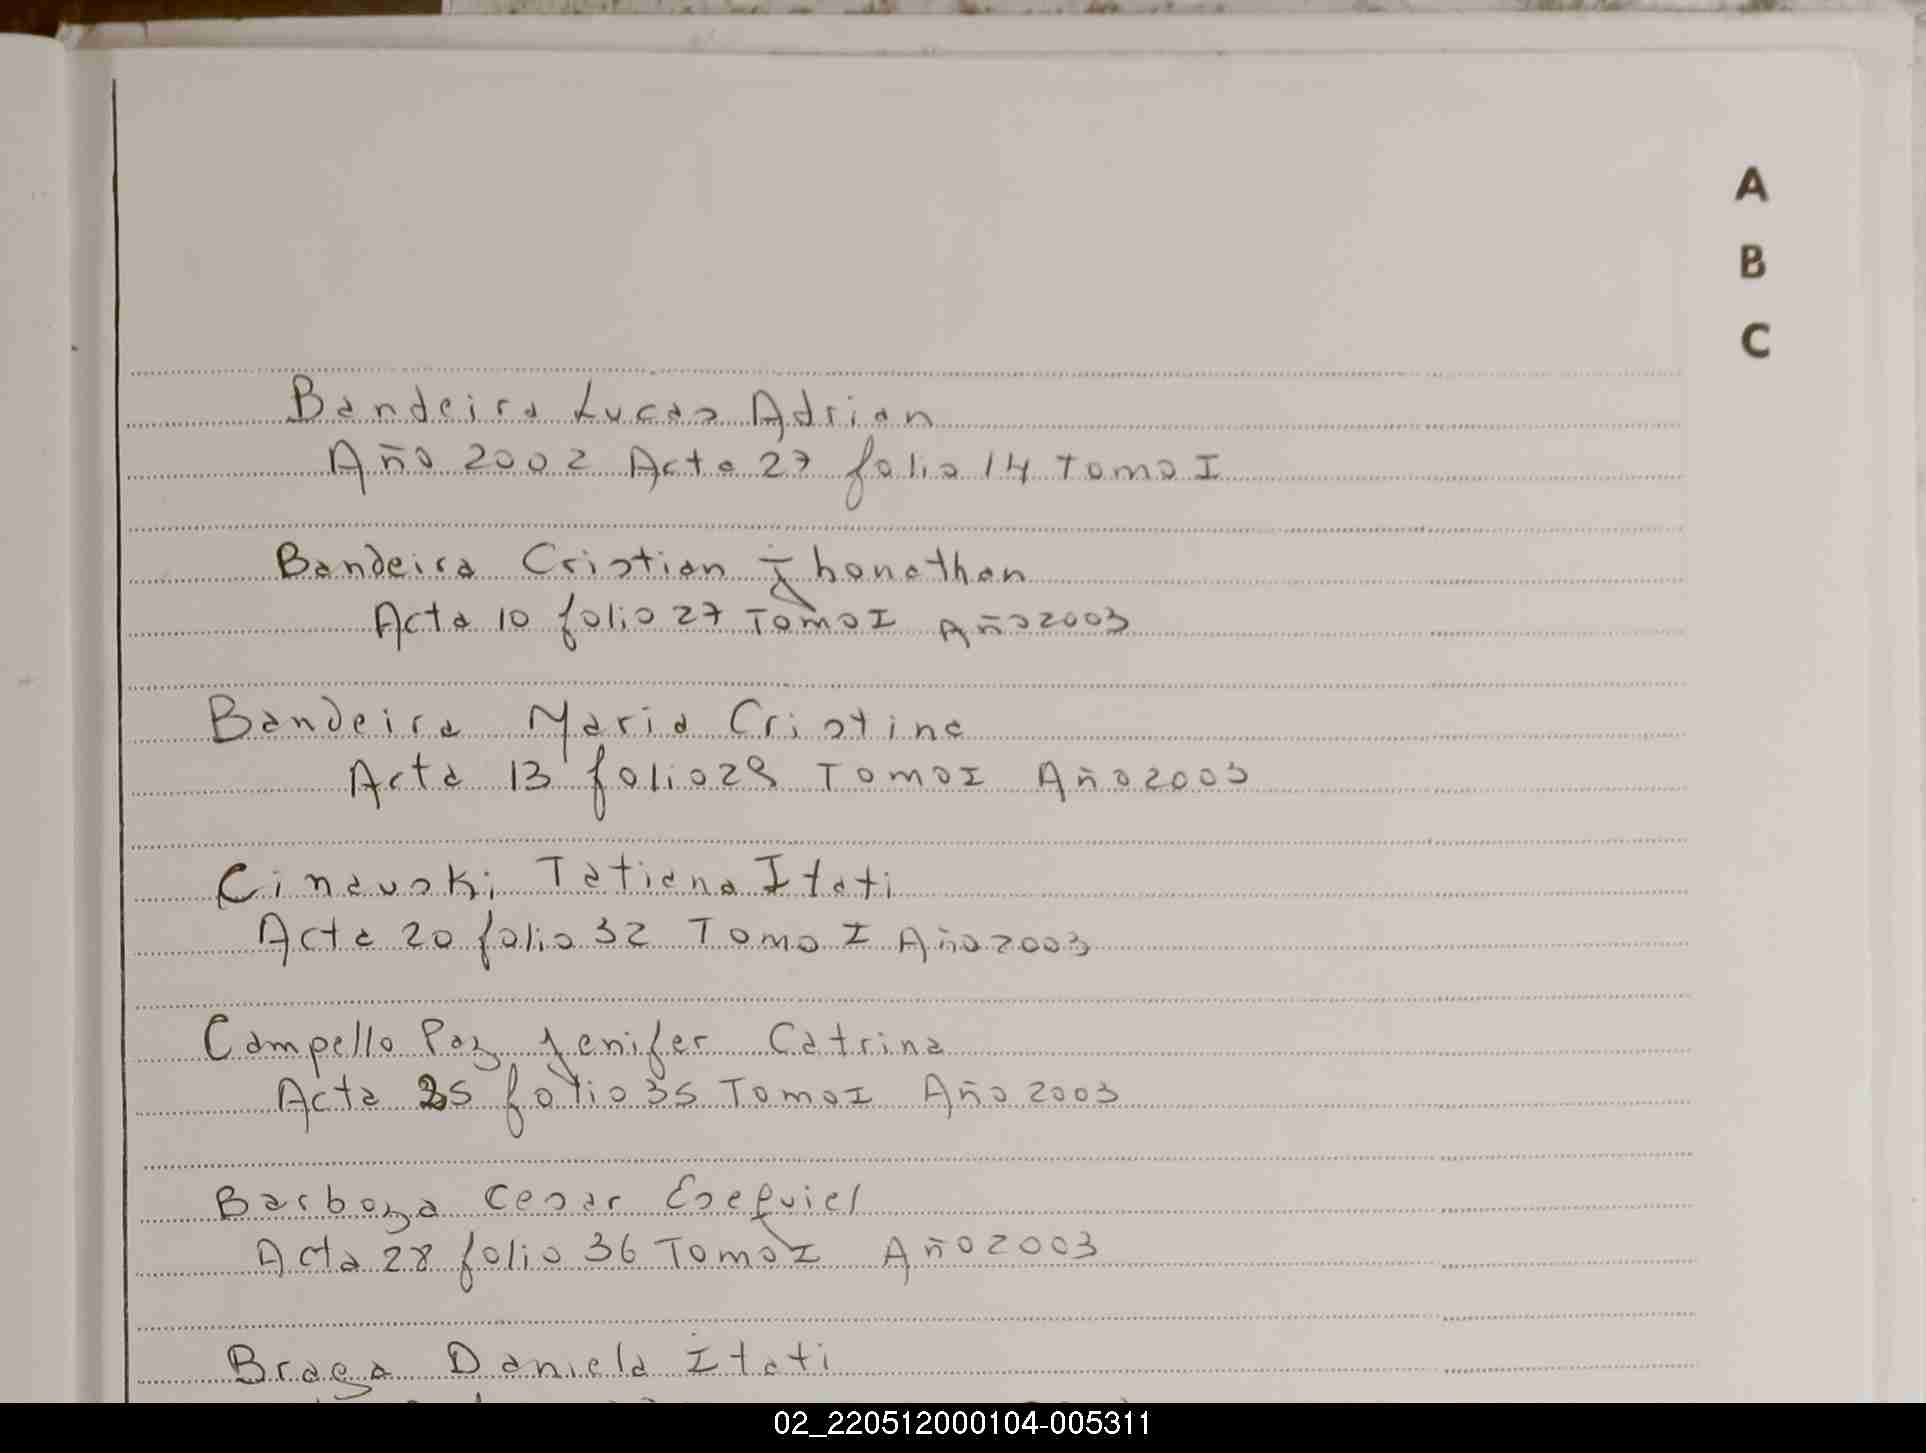 A
B
C
Bandeira Lucas Adrian
Año 2002 Acta 27 folio 14 Tomo I
Bandeira Cristian Jhonathan
Acta 10 folio 27 Tomo I Año 2003
Bandeira Maria Cristina
Acta 13 folio 28 Tomo I Año 2003
Cinavski Tatiana Itati
Acta 20 folio 32 Tomo I Año 2003
Campello Paz Jenifer Catrina
Acta 25 folio 35 Tomo I Año 2003
Barboza Cesar Esequiel
Acta 28 folio 36 Tomo I Año 2003
Braga Daniela Itati
02_220512000104-005311